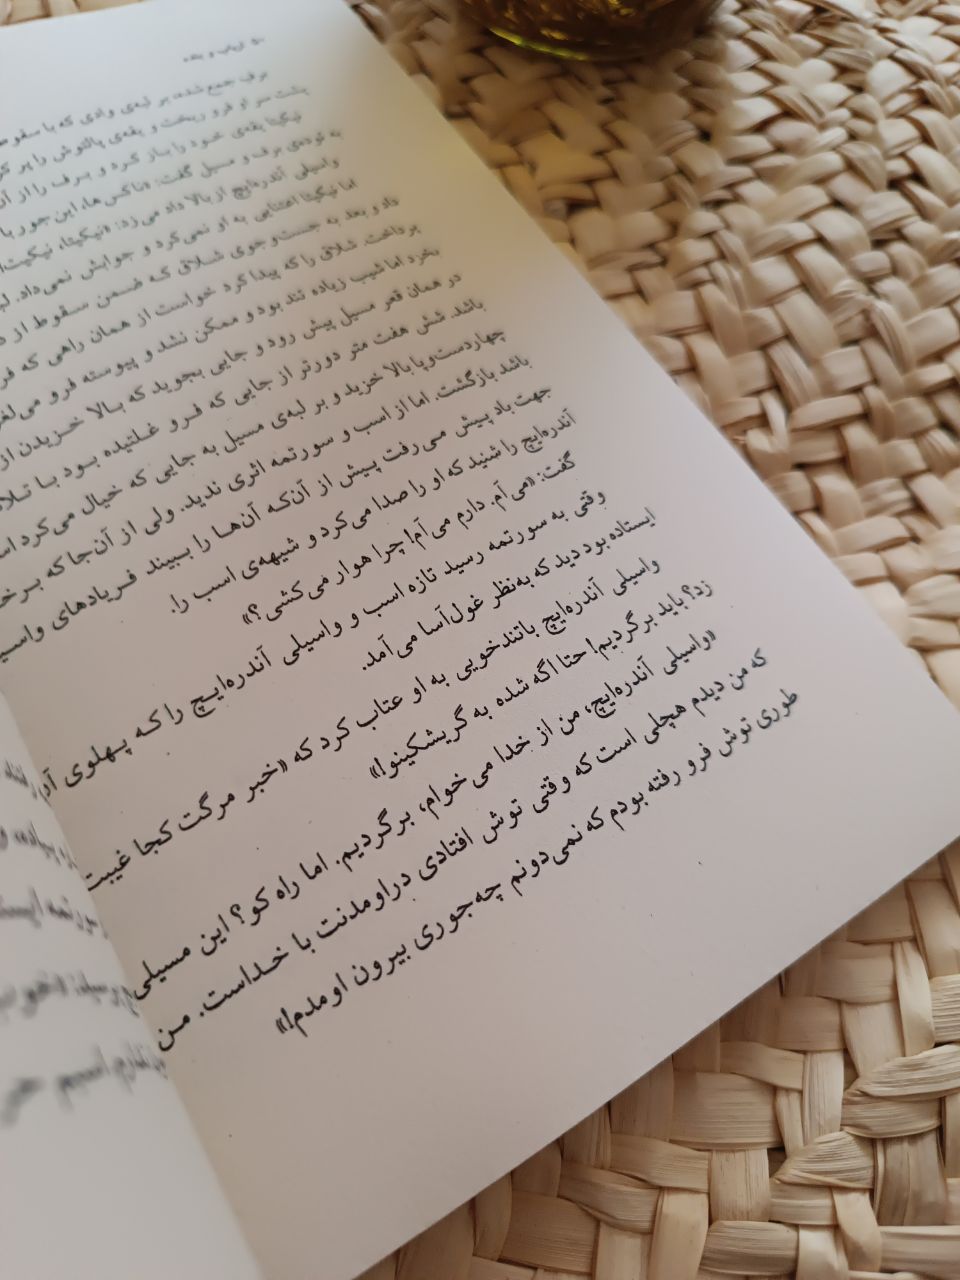 ارباب و بنده
برف جمع شده بر لبه‌ی وادی که با سقوط
پشت سر او فرو ریخت و یقه‌ی پالتوش را پر کر
نیکیتا یقه‌ی خود را باز کرد و برف را از آن
به توده‌ی برف و مسیل گفت: «ناکس‌ها، این جور با
واسیلی آندره‌ایچ از بالا داد می‌زد: «نیکیتا، نیکیت
اما نیکیتا اعتنایی به او نمی‌کرد و جوابش نمی‌داد.
داد و بعد به جست‌وجوی شلاق که ضمن سقوط از د
پرداخت. شلاق را که پیدا کرد خواست از همان راهی که فر
بخرد اما شیب زیاده تند بود و ممکن نشد و پیوسته فرو می‌لغز
در همان قعر مسیل پیش رود و جایی بجوید که بالا خزیدن از
باشد. شش هفت متر دورتر از جایی که فرو غلتیده بود با تلا
چهاردست‌وپا بالا خزید و بر لبه‌ی مسیل به جایی که خیال می‌کرد اس
باشد بازگشت. اما از اسب و سورتمه اثری ندید. ولی از آن‌جا که برخ
جهت باد پیش می‌رفت پیش از آن‌که آن‌ها را ببیند فریادهای واسی
آندره‌ایچ را شنید که او را صدا می‌کرد و شیهه‌ی اسب را.
گفت: «می‌آم. دارم می‌آم! چرا هوار می‌کشی؟»
وقتی به سورتمه رسید تازه اسب و واسیلی آندره‌ایچ را که پهلوی آن
ایستاده بود دید که به‌نظر غول‌آسا می‌آمد.
واسیلی آندره‌ایچ باتندخویی به او عتاب کرد که «خبر مرگت کجا غیبت
زد؟ باید برگردیم! حتا اگه شده به گریشکینو!»
«واسیلی آندره‌ایچ، من از خدا می‌خوام، برگردیم. اما راه کو؟ این مسیلی
که من دیدم هچلی است که وقتی توش افتادی دراومدنت با خداست. من
طوری توش فرو رفته بودم که نمی‌دونم چه‌جوری بیرون اومدم!»